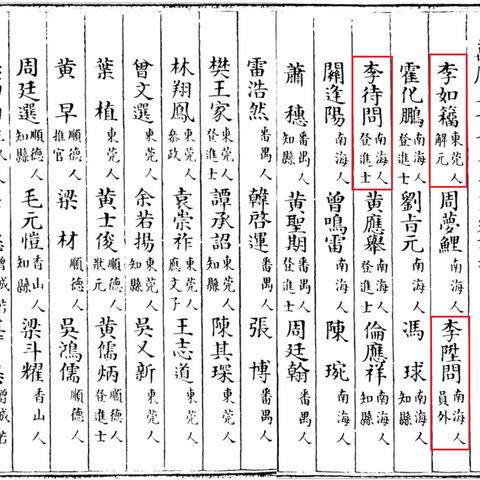 李如穡 東莞人 解元 周夢鯉 南海人 李陞問 南海人 員外
霍化鵬 南海人 登進士 劉㫖元 南海人 馮球 南海人 知縣
李待問 南海人 登進士 黃應舉 南海人 登進士 倫應祥 南海人 知縣
關逢陽 南海人 曾鳴雷 南海人 陳琬 南海人
蕭穗 番禺人 知縣 黃聖期 番禺人 登進士 周廷翰 番禺人
雷浩然 番禺人 韓啓運 番禺人 張博 番禺人
樊王家 東莞人 登進士 譚承詔 東莞人 知縣 陳其琛 東莞人 知縣
林翔鳳 東莞人 參政 袁崇祚 東莞人 應文子 王志道 東莞人
曾文選 東莞人 余若揚 東莞人 知縣 吳又新 東莞人
葉植 東莞人 黃士俊 順德人 狀元 黃儒炳 順德人 登進士
黃早 順德人 推官 梁材 順德人 吳鴻儒 順德人
周廷選 順德人 知縣 毛元愷 香山人 梁斗耀 香山人